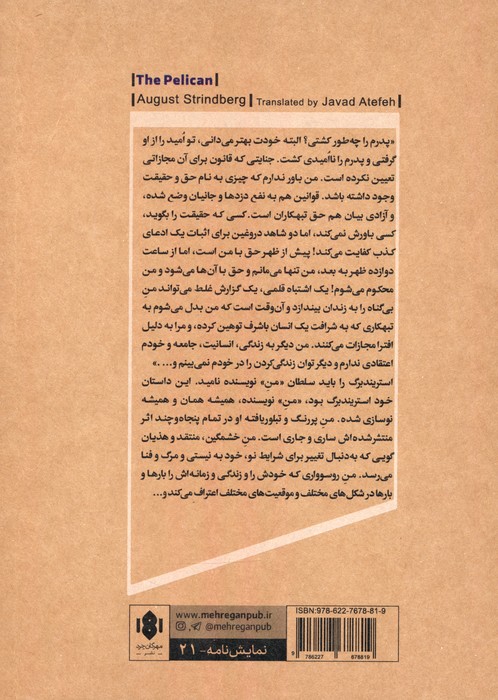 |The Pelican|
|August Strindberg| Translated by Javad Atefeh|
«پدرم را چه‌طور کشتی؟ البته خودت بهتر می‌دانی، تو اُمید را از او
گرفتی و پدرم را نااُمیدی کشت. جنایتی که قانون برای آن مجازاتی
تعیین نکرده است. من باور ندارم که چیزی به نام حق و حقیقت
وجود داشته باشد. قوانین هم به نفع دزدها و جانیان وضع شده،
و آزادی بیان هم حق تبهکاران است. کسی که حقیقت را بگوید،
کسی باورش نمی‌کند، اما دو شاهد دروغین برای اثبات یک ادعای
کذب کفایت می‌کند! پیش از ظهر حق با من است، اما از ساعت
دوازده ظهر به بعد، من تنها می‌مانم و حق با آن‌ها می‌شود و من
محکوم می‌شوم! یک اشتباه قلمی، یک گزارش غلط می‌تواند منِ
بی‌گناه را به زندان بیندازد و آن‌وقت است که من بدل می‌شوم به
تبهکاری که به شرافت یک انسان باشرف توهین کرده، و مرا به دلیل
افترا مجازات می‌کنند. من دیگر به زندگی، انسانیت، جامعه و خودم
اعتقادی ندارم و دیگر توان زندگی‌کردن را در خودم نمی‌بینم و... .»
استریندبرگ را باید سلطان «منِ» نویسنده نامید. این داستان
خود استریندبرگ بود، «منِ» نویسنده، همیشه همان و همیشه
نوسازی شده. منِ پررنگ و تبلوریافته او در تمام پنجاه‌و‌چند اثر
منتشرشده‌اش ساری و جاری است. منِ خشمگین، منتقد و هذیان
گویی که به‌دنبال تغییر برای شرایط نو، خود به نیستی و مرگ و فنا
می‌رسد. منِ روسوواری که خودش را و زندگی و زمانه‌اش را بارها و
بارها در شکل‌های مختلف و موقعیت‌های مختلف اعتراف می‌کند و...
www.mehreganpub.ir
@mehreganpub
نمایش‌نامه - ۲۱
مهرگان خرد
نشر
ISBN:978-622-7678-81-9
9 786227 678819